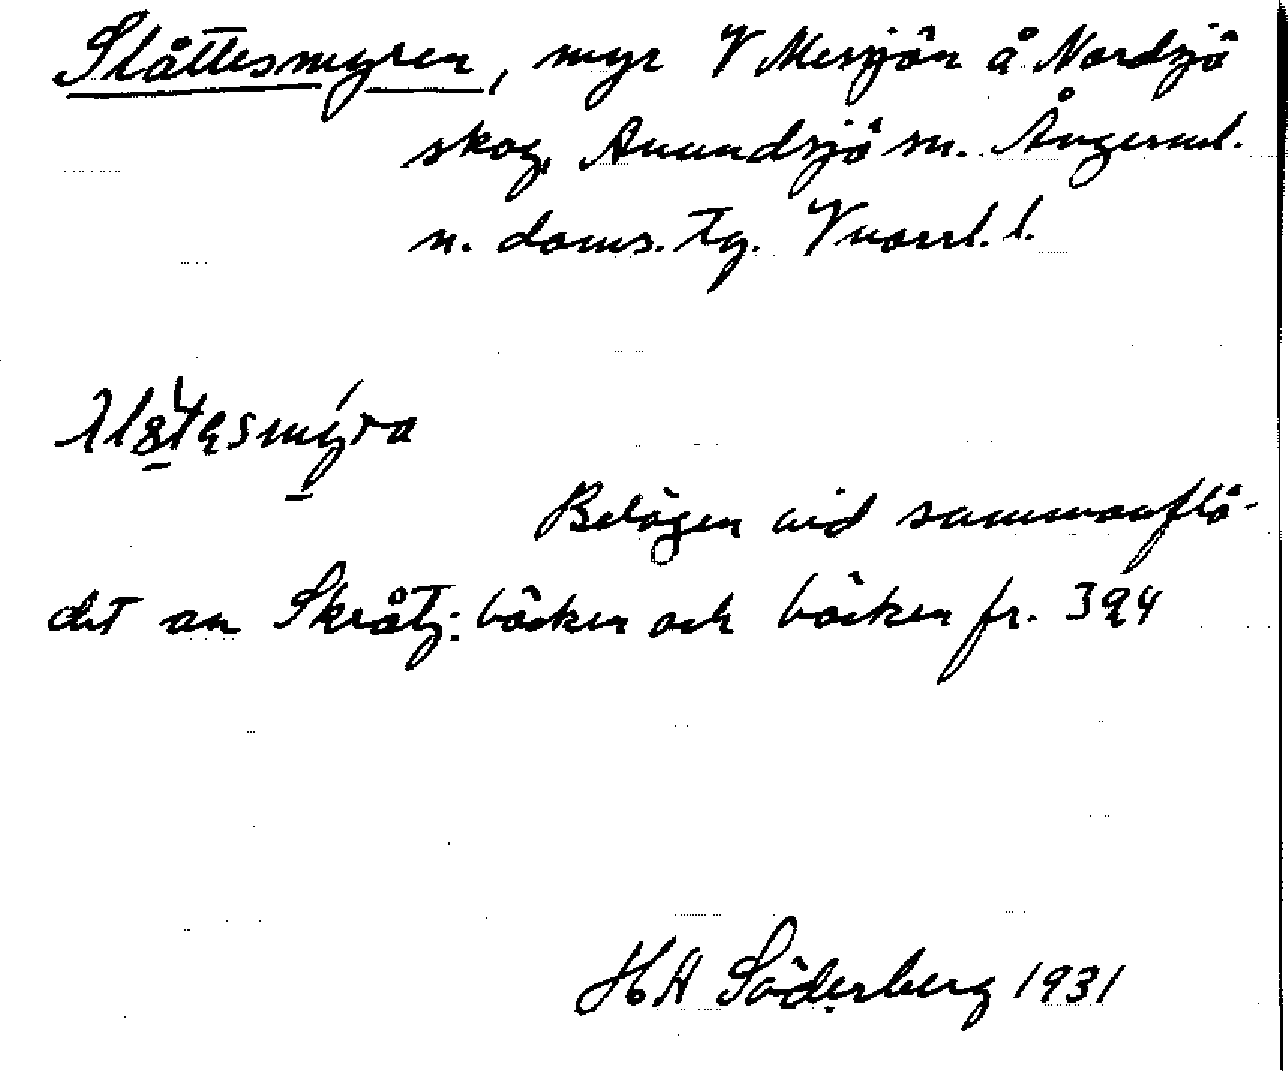 Slåttesmyren, myr V Mesjön å Nordsjö
skog, Anundsjö sn. Ångerml.
n. doms. tg. Vnorrl. l.
Belägen vid sammanflö-
det av Skråtj: bäcken och bäcken fr. 394
HA Söderberg 1931